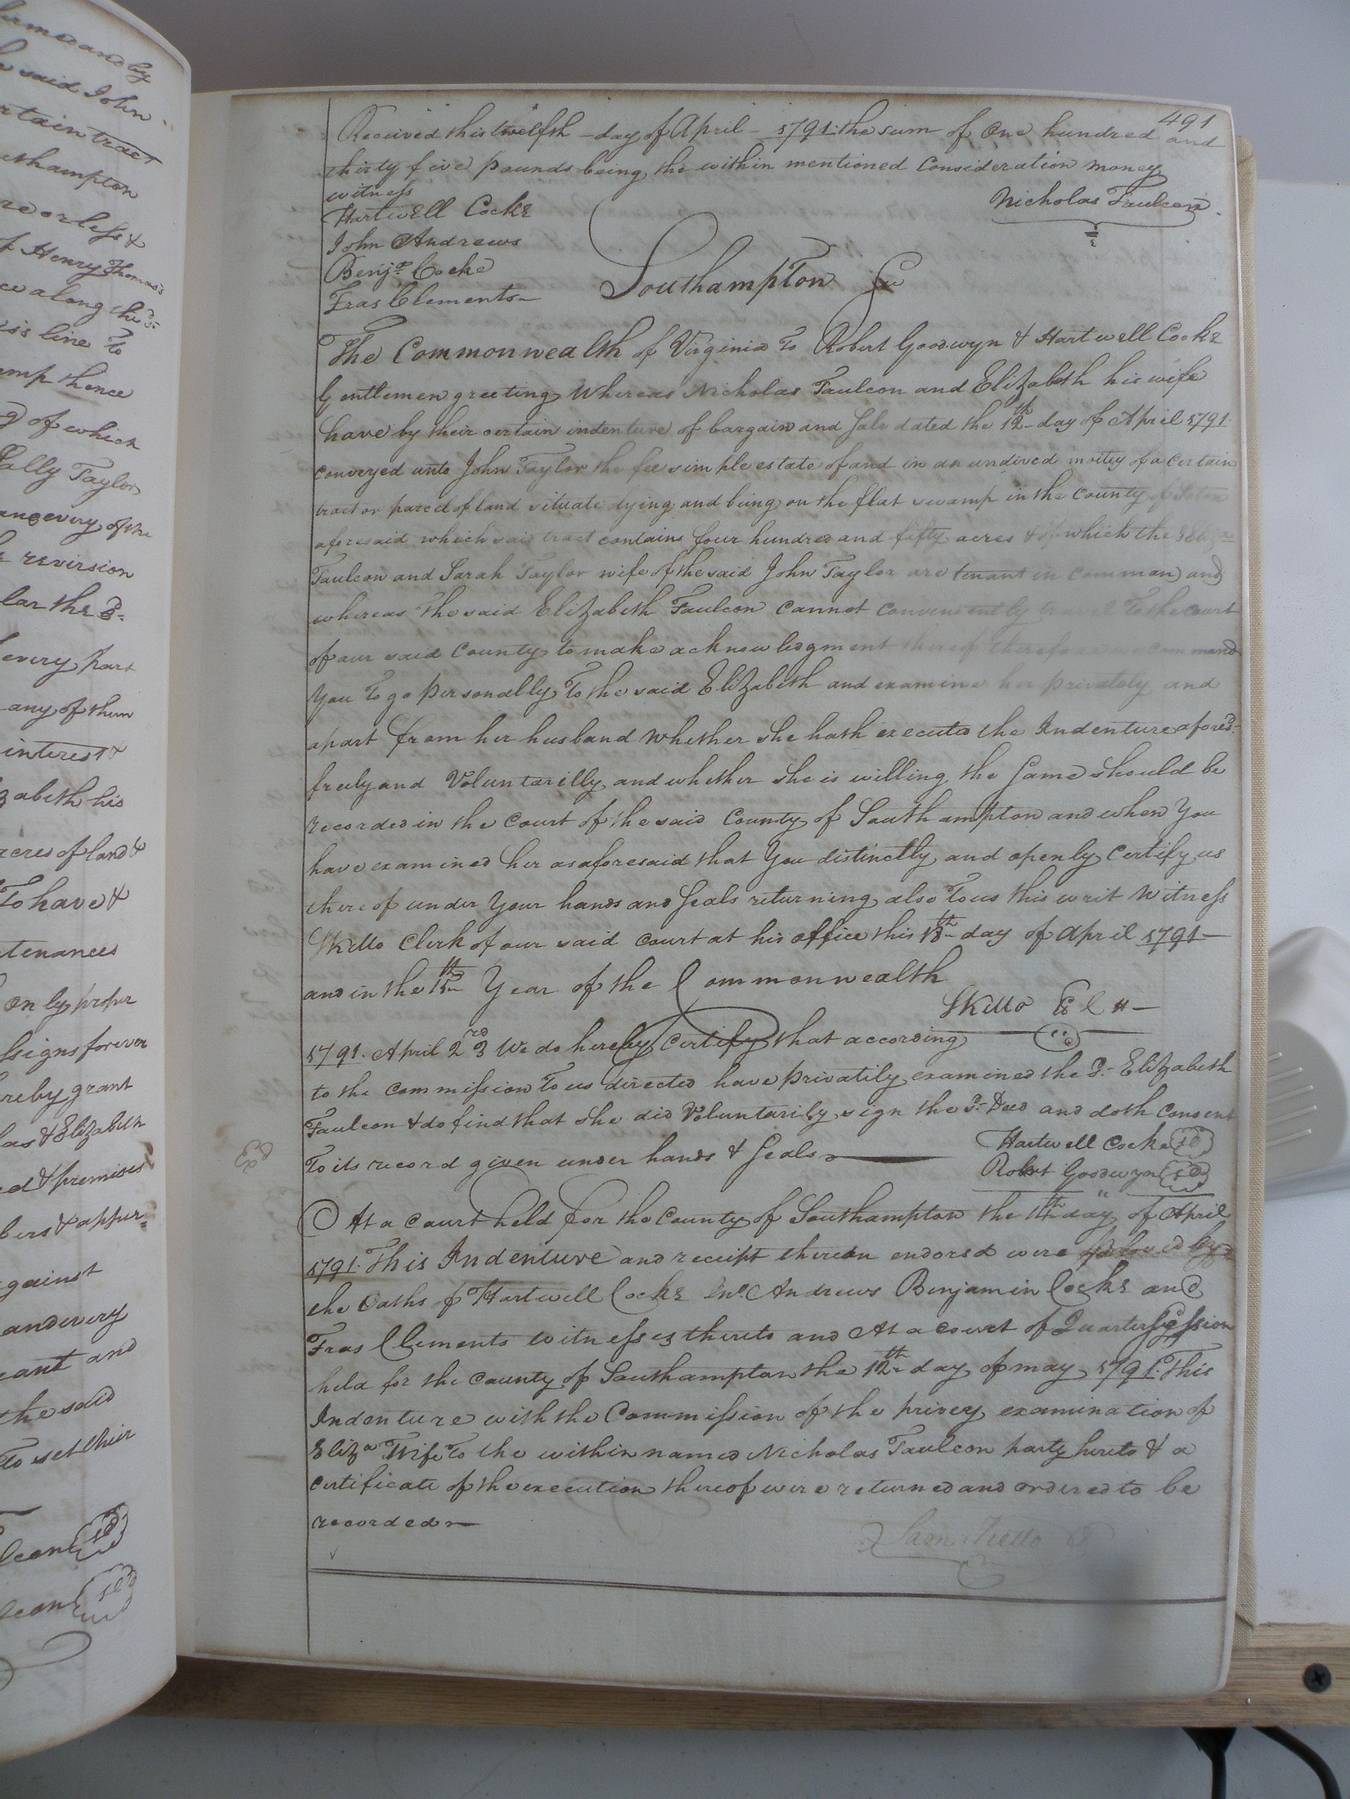 same and by
said John
certain tract
Southampton
more or less &
of Henry Thomas's
along the sd
line To
thence
of which
Sally Taylor
and every of the
revirsion
the sd
every part
any of them
interest &
Elizabeth his
acres of land &
To have &
only proper
assigns forever
hereby grant
& Elizabeth
& premises
& appur=
against
and every
and
the said
To set their
491
Received this twelfth day of April 1791 the sum of One hundred and
thirty five pounds being the within mentioned Consideration money
witness
Nicholas Faulcon
Hartwell Cocke
John Andrews
Benja Cocke
Fras Clements
Southampton Sc
The Commonwealth of Virginia To Robert Goodwyn & Hartwell Cocke
Gentlemen greeting Whereas Nicholas Faulcon and Elizabeth his wife
have by their certain indenture of bargain and Sale dated the 12th day of April 1791
conveyed unto John Taylor the fee simple estate of and in an undived moity of a Certain
tract or parcel of land situate lying and being on the flat swamp in the County of
aforesaid which said tract contains four hundred and fifty acres & of which the sd Eliza
Faulcon and Sarah Taylor wife of the said John Taylor are tenant in common and
whereas the said Elizabeth Faulcon cannot conveniently travel To the court
of our said County to make acknowledgment thereof therefore we command
You To go personally To the said Elizabeth and examine her privately and
apart from her husband whether she hath executed the Indenture afored
freely and Voluntarilly and whether she is willing the same should be
recorded in the Court of the said County of Southampton and when You
have examined her as aforesaid that You distinctly and openly Certify us
thereof under Your hands and Seals returning also To us this writ Witness
SKello Clerk of our said court at his office this 18th day of April 1791
and in the 15th Year of the Commonwealth
SKello
1791 April 23rd We do hereby Certify that according
to the commission To us directed have privatily examined the sd Elizabeth
Faulcon & do find that she did Voluntarily sign the sd Deed and doth Consent
To its record given under hands & Seals
Hartwell Cocke sd
Robert Goodwyn sd
Ex
At a Court held for the County of Southampton the 14th day of April
1791 This Indenture and receipt thereon endorsd were proved by
the Oaths of Hartwell Cocke Jno Andrews Benjamin Cocke and
Fras Clements witnesses thereto and At a court of Quarter Session
held for the County of Southampton the 12th day of may 1791 This
Indenture with the Commission of the privey examination of
Eliza Wife To the within named Nicholas Faulcon party hereto & a
certificate of the execution thereof were returned and ordered to be
recorded
Sam Kello